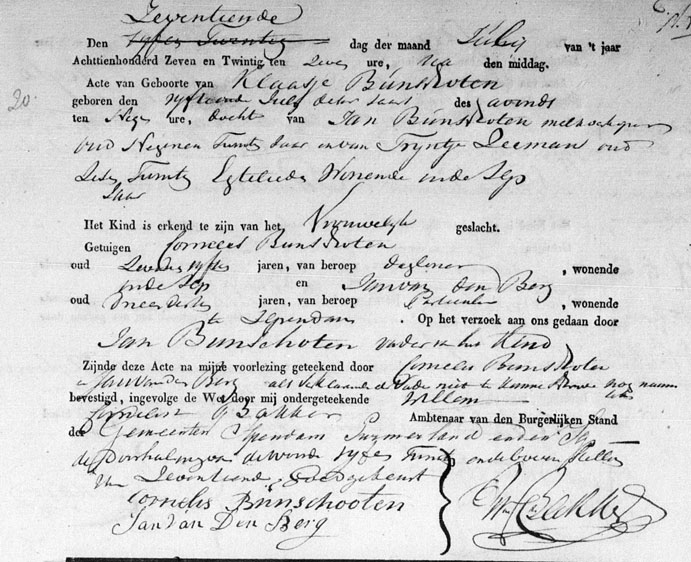 Zeventiende
Den vyfen Twintig dag der maand July van 't jaar
Achttienhonderd Zeven en Twintig, ten ure, des na den middag.
20
Acte van Geboorte van Klaasje Bunschoten
geboren den July dezer Jaars des avonds
ten Nege ure, docht van Jan Bunschoten melkverkoper
oud Negenen Twintig Jaar en van Tryntje Leeman oud
Zes Twintig Egtelieden Wonende inde Ilp
Jaar
Het Kind is erkend te zijn van het Vrouwelyk geslacht.
Getuigen Cornelis Bunschoten
oud jaren, van beroep , wonende
inde Ilp en Jan van den Berg
oud jaren, van beroep , wonende
te Ilpendam . Op het verzoek aan ons gedaan door
Jan Bunschoten vader van het Kind
Zijnde deze Acte na mijne voorlezing geteekend door Cornelis Bunschoten
en Jan van den Berg als de Vader niet te kunnen nog naam
bevestigd, ingevolge de Wet door mij ondergeteekende Willem
Cornelisz Bakker Ambtenaar van den Burgerlijken Stand
der Gemeenten Ilpendam Purmerland en den Ilp
de Doorhaling van de woorden vyfen Twintig en de boven Stellen
van Zeventiende Goedgekeurt
Cornelis Bunschooten
Jan van Den Berg
Wm Cz Bakker